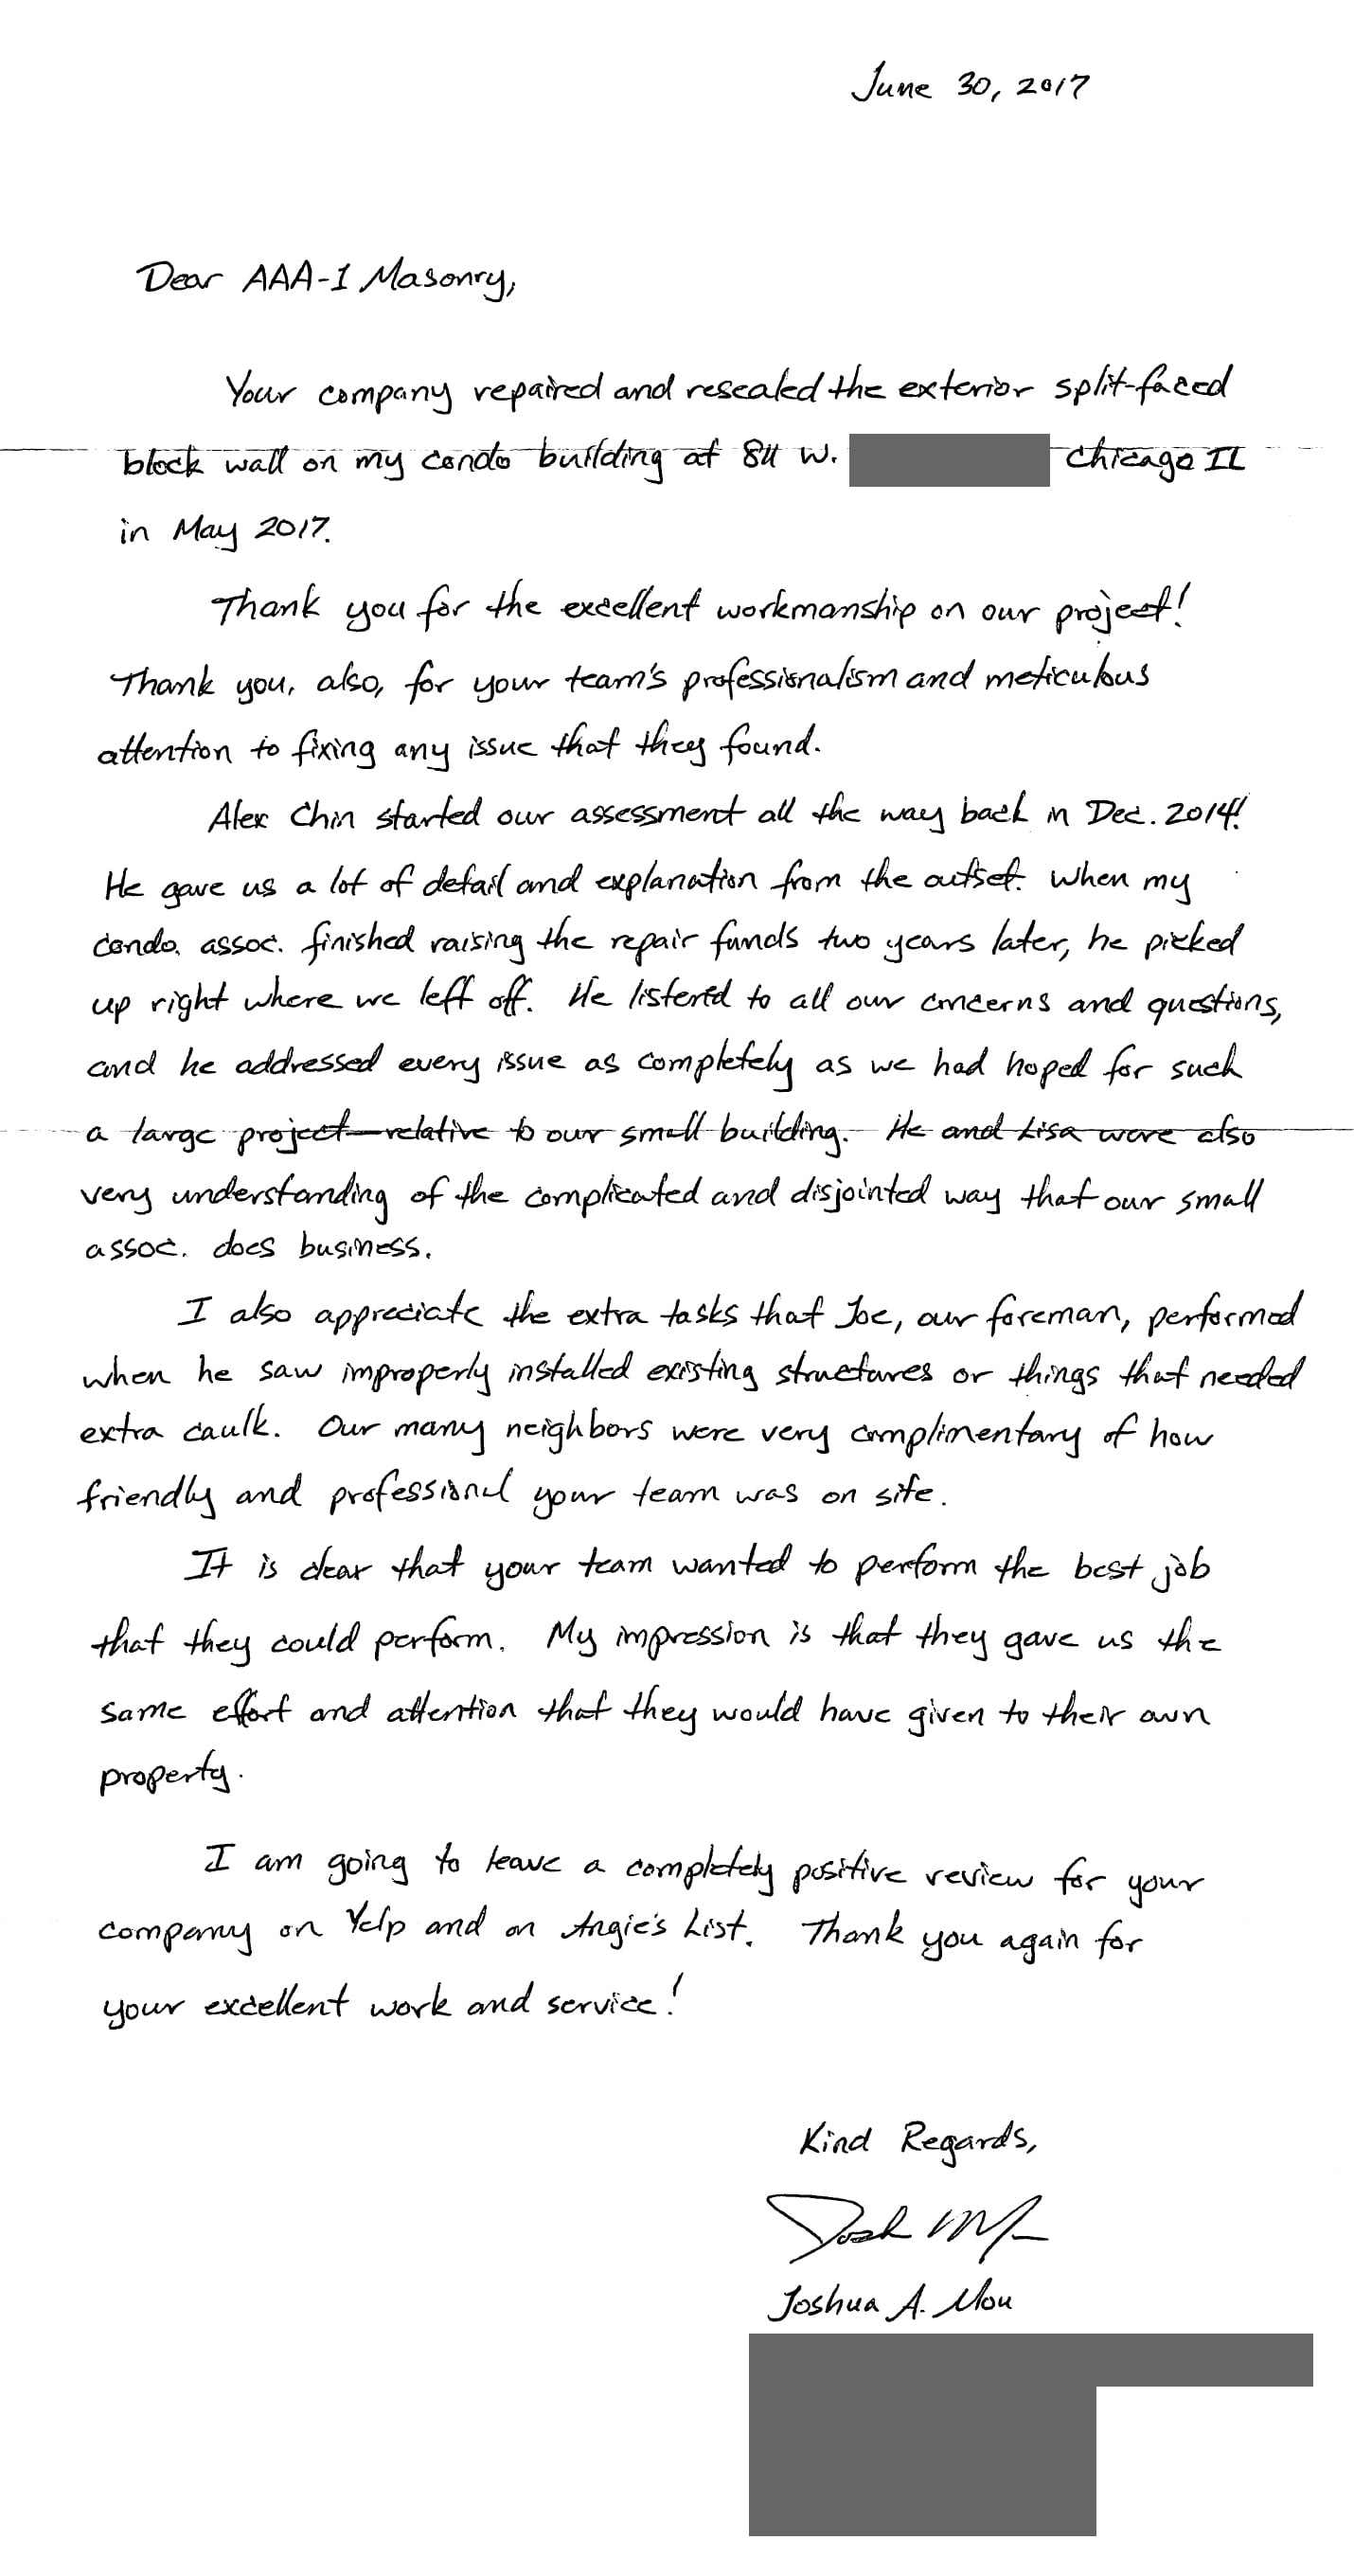 June 30, 2017
Dear AAA-1 Masonry,
Your company repaired and resealed the exterior split-faced
block wall on my condo building at 811 W. Chicago IL
in May 2017.
Thank you for the excellent workmanship on our project!
Thank you, also, for your team's professionalism and meticulous
attention to fixing any issue that they found.
Alex Chin started our assessment all the way back in Dec. 2014!
He gave us a lot of detail and explanation from the outset. When my
condo. assoc. finished raising the repair funds two years later, he picked
up right where we left off. He listened to all our concerns and questions,
and he addressed every issue as completely as we had hoped for such
a large project relative to our small building. He and Lisa were also
very understanding of the complicated and disjointed way that our small
assoc. does business.
I also appreciate the extra tasks that Joe, our foreman, performed
when he saw improperly installed existing structures or things that needed
extra caulk. Our many neighbors were very complimentary of how
friendly and professional your team was on site.
It is clear that your team wanted to perform the best job
that they could perform. My impression is that they gave us the
same effort and attention that they would have given to their own
property.
I am going to leave a completely positive review for your
company on Yelp and on Angie's List. Thank you again for
your excellent work and service!
Kind Regards,
Josh
Joshua A. Mou